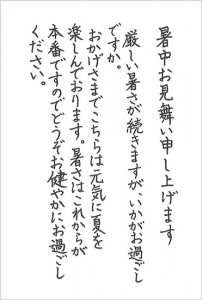 暑中お見舞い申し上げます
厳しい暑さが続きますが、いかがお過ごし
ですか。
おかげさまでこちらは元気に夏を
楽しんでおります。暑さはこれからが
本番ですのでどうぞお健やかにお過ごし
ください。